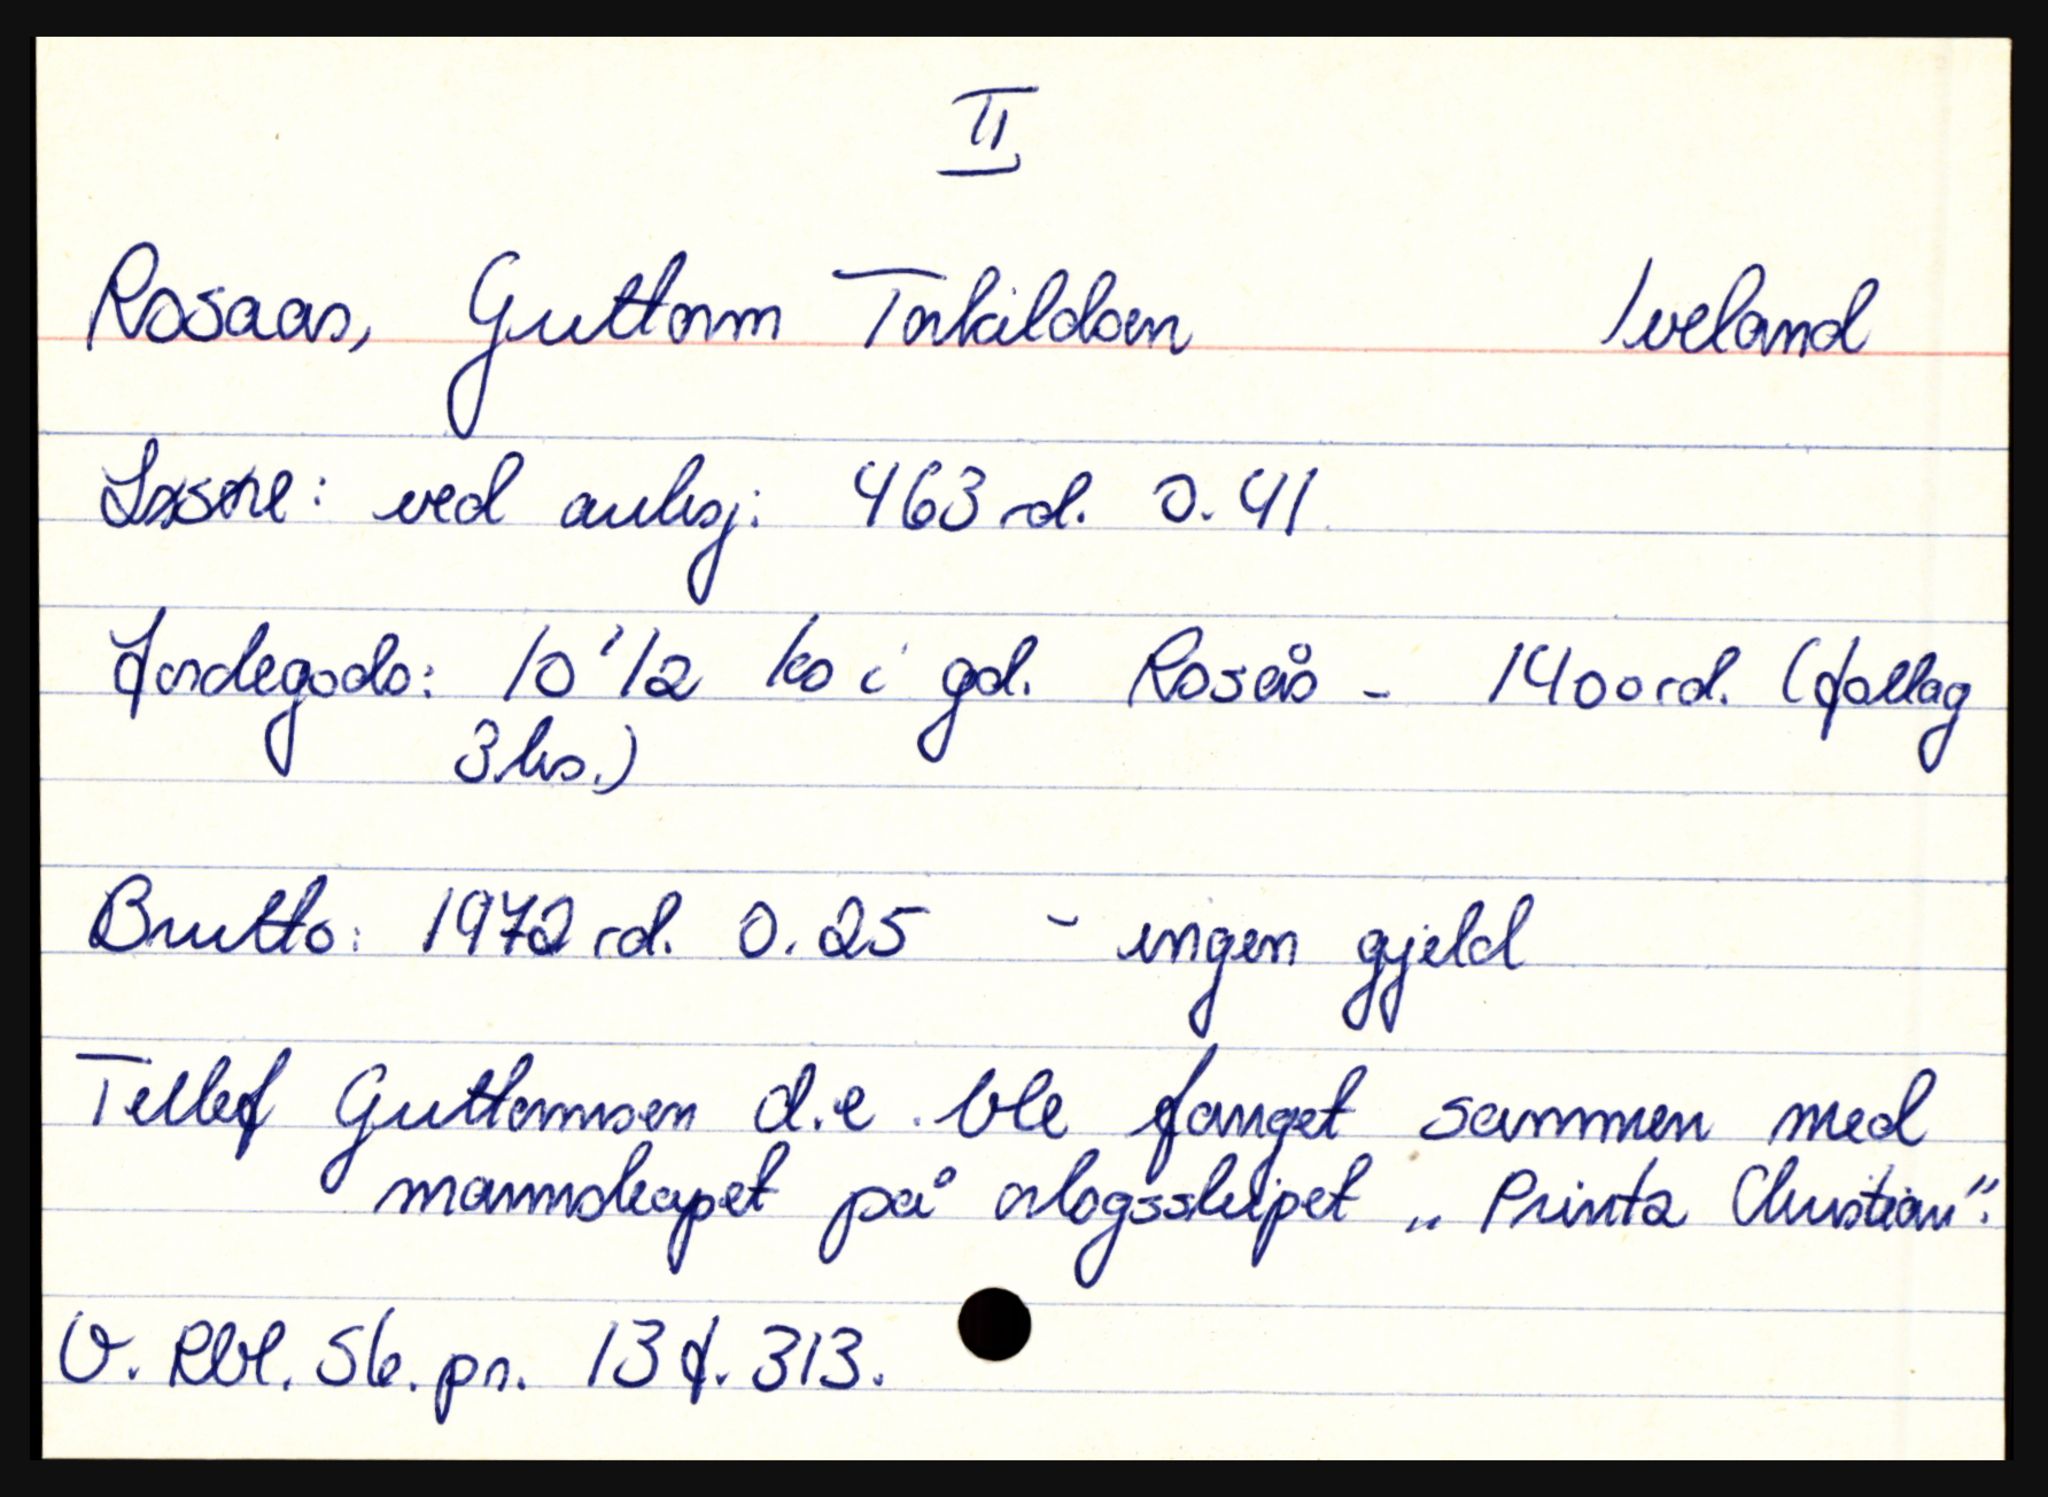 II
Rosaas, Guttorm Torkildsen Iveland
Løsøre: ved auksj: 463 rd. 0. 41
Jordegods: 10 1/2 ks i gd. Rosås - 1400 rd. (follag
3 hs.)
Brutto: 1972 rd. 0. 25 - ingen gjeld
Tellef Guttormsen d.e. ble fanget sammen med
mannskapet på orlogsskipet „Printz Christian".
V. Rbl. Sk. pr. 13 f. 313.